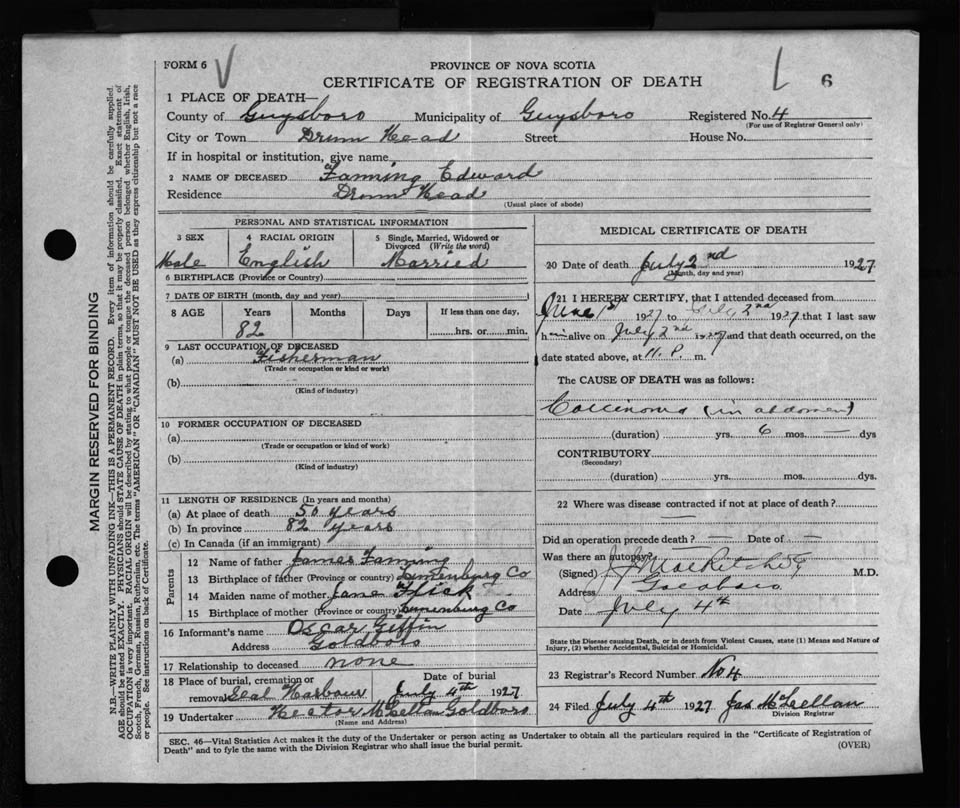 FORM 6
PROVINCE OF NOVA SCOTIA
6
CERTIFICATE OF REGISTRATION OF DEATH
1 PLACE OF DEATH—
County of Guysboro Municipality of Guysboro Registered No. 4
(For use of Registrar General only)
City or Town Drum Head Street House No.
If in hospital or institution, give name
2 NAME OF DECEASED Fanning Edward
Residence Drum Head
(Usual place of abode)
PERSONAL AND STATISTICAL INFORMATION
3 SEX 4 RACIAL ORIGIN 5 Single, Married, Widowed or Divorced (Write the word)
Male English Married
6 BIRTHPLACE (Province or Country)
7 DATE OF BIRTH (month, day and year)
8 AGE Years Months Days If less than one day,
82 hrs. or min.
9 LAST OCCUPATION OF DECEASED
(a) Fisherman
(Trade or occupation or kind or work)
(b)
(Kind of industry)
10 FORMER OCCUPATION OF DECEASED
(a)
(Trade or occupation or kind of work)
(b)
(Kind of industry)
11 LENGTH OF RESIDENCE (In years and months)
(a) At place of death 50 years
(b) In province 82 years
(c) In Canada (if an immigrant)
Parents
12 Name of father James Fanning
13 Birthplace of father (Province or country) Lunenburg Co
14 Maiden name of mother Jane
15 Birthplace of mother (Province or country) Lunenburg Co
16 Informant's name Oscar Giffin
Address Goldboro
17 Relationship to deceased none
18 Place of burial, cremation or Date of burial
removal Seal Harbour July 4th 1927
19 Undertaker Hector McLellan Goldboro
(Name and Address)
MEDICAL CERTIFICATE OF DEATH
20 Date of death July 2nd 1927
(Month, day and year)
21 I HEREBY CERTIFY, that I attended deceased from
June 1st 1927 to July 2nd 1927 that I last saw
h alive on July 2nd 1927 and that death occurred, on the
date stated above, at 11. P. m.
The CAUSE OF DEATH was as follows:
Carcinoma (in abdomen)
(duration) yrs. 6 mos. — dys
CONTRIBUTORY
(Secondary)
(duration) yrs. mos. dys.
22 Where was disease contracted if not at place of death?
—
Did an operation precede death? — Date of —
Was there an autopsy?
(Signed) M.D.
Address Goldboro
Date July 4th
State the Disease causing Death, or in death from Violent Causes, state (1) Means and Nature of
Injury, (2) whether Accidental, Suicidal or Homicidal.
23 Registrar's Record Number No 4
24 Filed July 4th 1927 Jas McLellan
Division Registrar
SEC. 46—Vital Statistics Act makes it the duty of the Undertaker or person acting as Undertaker to obtain all the particulars required in the "Certificate of Registration of
Death" and to fyle the same with the Division Registrar who shall issue the burial permit. (OVER)
MARGIN RESERVED FOR BINDING
N.B.—WRITE PLAINLY WITH UNFADING INK—THIS IS A PERMANENT RECORD. Every item of information should be carefully supplied.
AGE should be stated EXACTLY. PHYSICIANS should STATE CAUSE OF DEATH in plain terms, so that it may be properly classified. Exact statement of
OCCUPATION is very important. RACIAL ORIGIN will be described by stating to what people or tongue the deceased person belonged whether English, Irish,
Scotch, French, German, Russian, Ruthenian, etc. The terms "AMERICAN" OR "CANADIAN" MUST NOT BE USED as they express citizenship but not a race
or people. See instructions on back of Certificate.